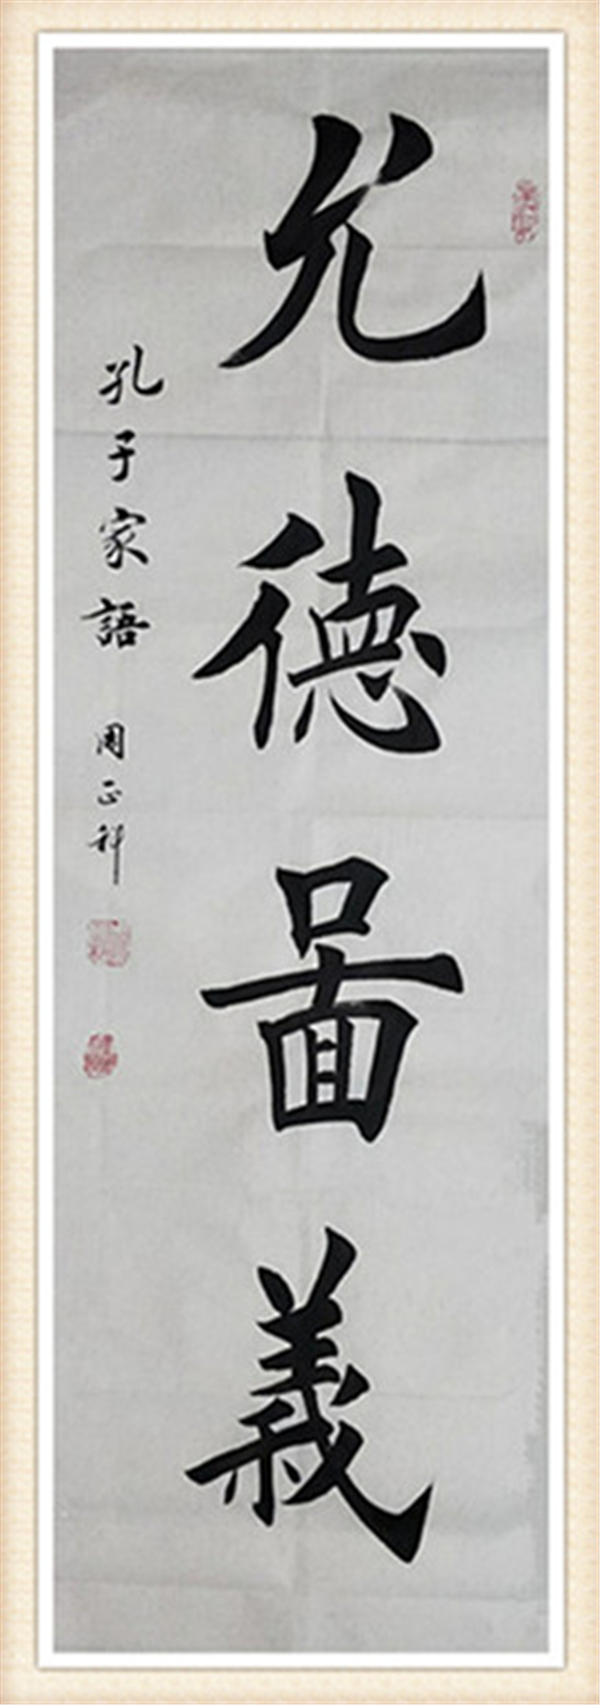 允德啚義
孔子家語 周正祥